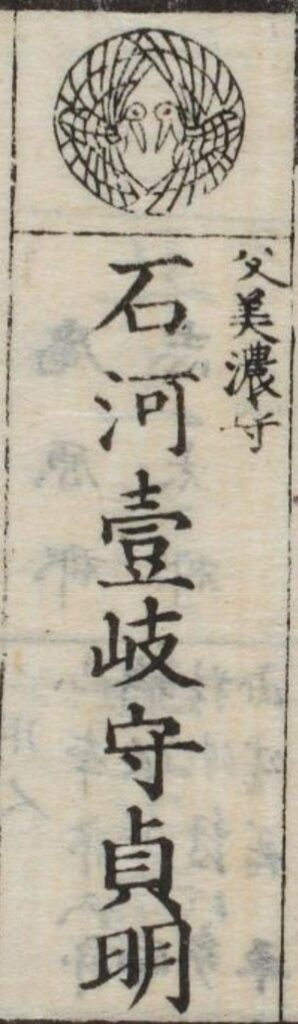 父美濃守
石河壹岐守貞明